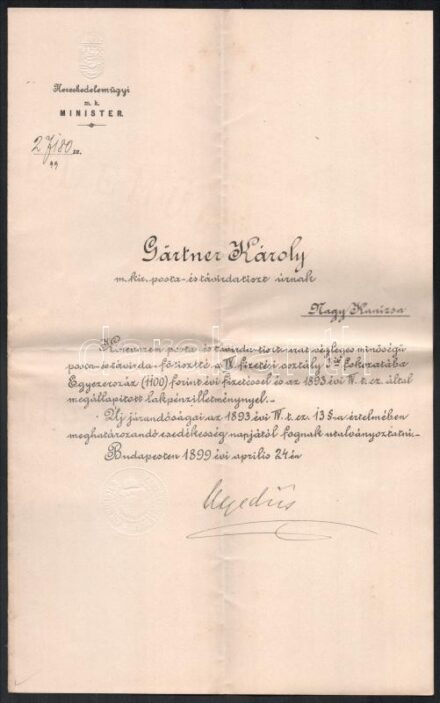 Kereskedelemügyi
m. k.
MINISTER.
27180 sz.
99
Gártner Károly
m. kir. posta- és távirdatiszt úrnak
Nagy Kanizsa
Kinevezem posta és távirda-tiszt urat végleges minőségű
posta-és távirda-főtisztté a IX fizetési osztály fokozatába
Egyezerszáz (1100) forint évi fizetéssel és az 1893 évi IV. t. cz. által
megállapított lakpénzilletménynyel.-
Uj járandóságai az 1893 évi IV. t. cz. 13 §-a értelmében
meghatározandó esedékesség napjától fognak utalványoztatni.-
Budapesten 1899 évi április 24 én
Hegedűs
darabanth